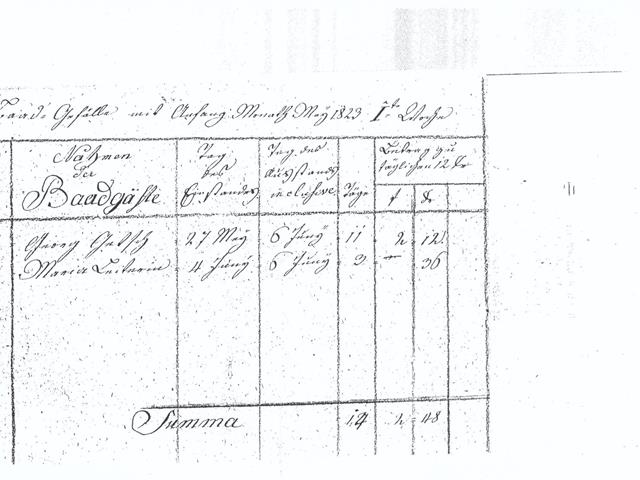 Baad-Gefälle mit Anfang Monath Mey 1823 Ite Woche
Nahmen der Baadgäste
Tag des Einstandes
Tag des Ausstands inclusive
Täge
Betrag zu täglichen 12 kr
f kr
Georg Getsch 27 Mey 6 Juny 11 2 12
Maria Leiterin 4 Juny 6 Juny 3 – 36
Summa 14 2 48